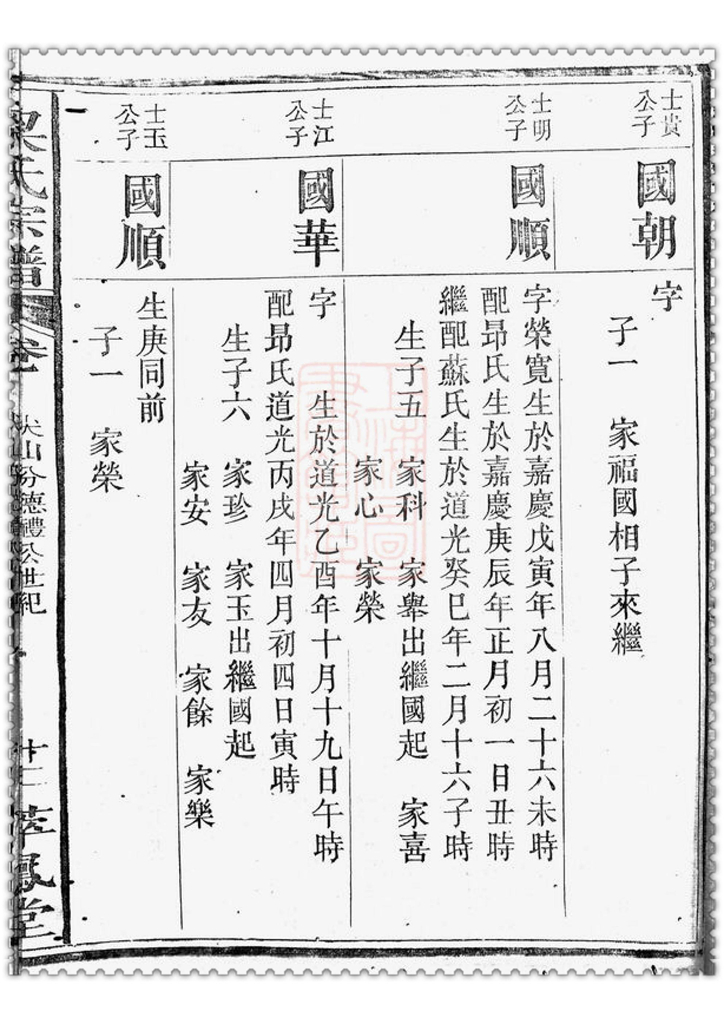 士貴
公子
國朝
字
子一 家福國相子來繼
士明
公子
國順
字榮寬生於嘉慶戊寅年八月二十六未時
配昂氏生於嘉慶庚辰年正月初一日丑時
繼配蘇氏生於道光癸巳年二月十六子時
生子五 家科 家舉出繼國起 家喜
家心 家榮
士江
公子
國華
字 生於道光乙酉年十月十九日午時
配昂氏道光丙戌年四月初四日寅時
生子六 家珍 家玉出繼國起
家安 家友 家餘 家樂
士玉
公子
國順
生庚同前
子一 家榮
氏宗譜
山分德禮公世紀
鳳堂